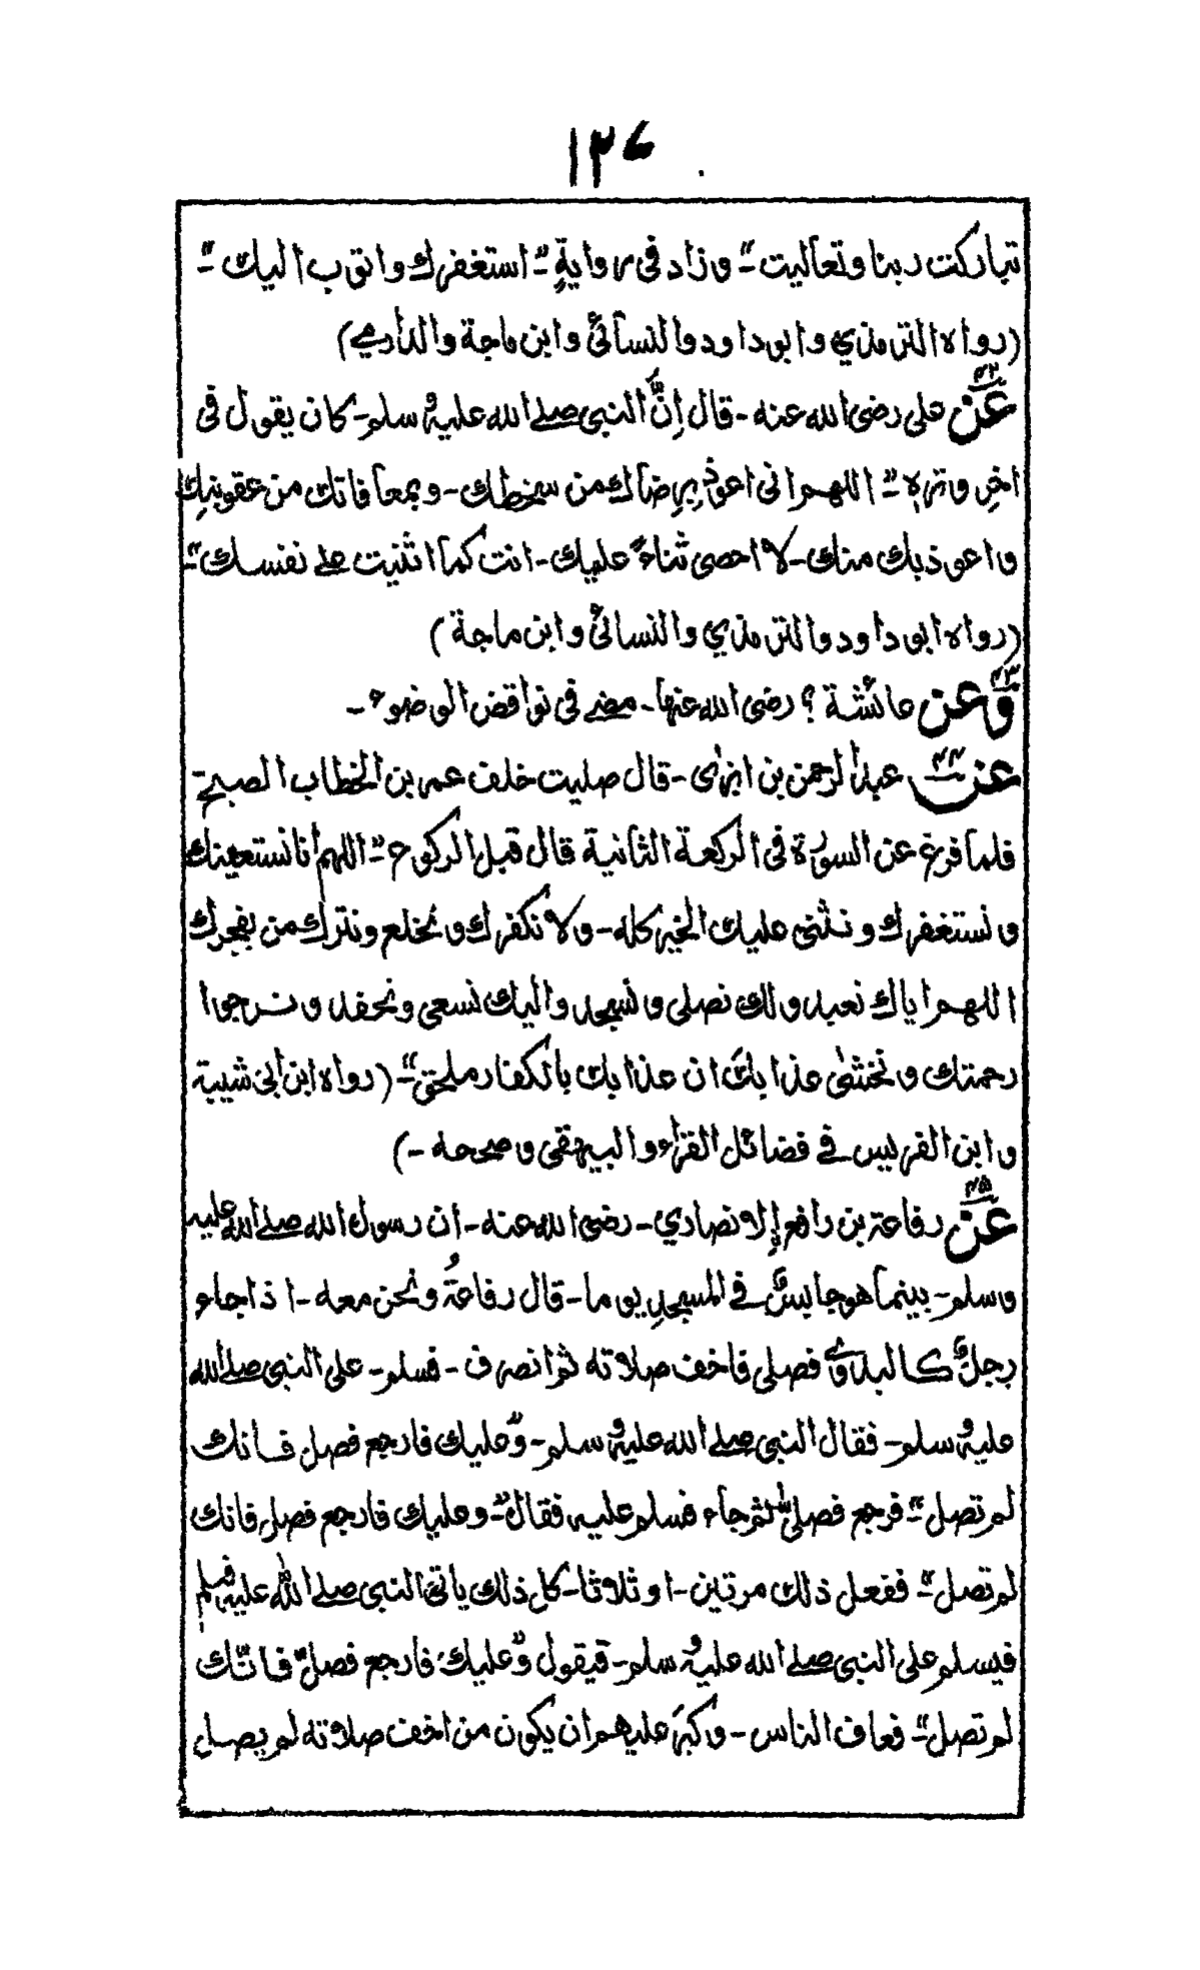 ١٣٧
تباركت ربنا وتعاليت"۔ وزاد فی روایةٍ "۔ استغفرك واتوب اليك"۔
(رواه الترمذي وابو داود والنسآئیُ وابن ماجة والدارمي)
٤٢
عَن علی رضی الله عنه۔ قال إنَّ النبی صلے الله عليهٖ وسلم۔ كان يقول فی
اخرِ وترہٖ "۔ اللهم انی اعوذُ بِرِضاك من سخطك۔ وبمعافاتك من عقوبتِك
واعوذ بك منك۔ لا احصی ثناءً عليك۔ انت كما اثنيت علے نفسك"۔
(رواه ابو داود والترمذي والنسائیُ وابن ماجة)
٤٣
وَعن عائشة ؓ رضی الله عنها۔ مضے فی نواقض الوضوء۔
عن ٤٤ عبد الرحمن بن ابزٰی۔ قال صليت خلف عمر بن الخطاب الصبح
فلما فرغ عن السورة فی الركعة الثانية قال قبل الركوع "۔ اللهم انا نستعينك
ونستغفرك ونثنی عليك الخير كله۔ ولا نكفرك ونخلع ونترك من يفجرك
اللهم اياك نعبد ولك نصلی ونسجد واليك نسعی ونحفد ونرجوا
رحمتك ونخشٰی عذابكَ ان عذابك بالكفار ملحق"۔ (رواه ابن ابی شيبة
وابن الضريس فے فضائل القرأٰء والبيهقی وصححه۔)
٤٥
عَن رفاعة بن رافعٍ الانصاري۔ رضی الله عنه۔ ان رسول الله صلے الله عليه
وسلم۔ بينما هو جالسٌ فے المسجدِ يوما۔ قال رفاعةُ ونحن معه۔ اذا جاء
رجلٌ كالبدوی فصلی فاخف صلاته ثم انصرف۔ فسلم۔ علی النبی صلے الله
عليهٖ وسلم۔ فقال النبی صلے الله عليهٖ وسلم۔ "وعليك فارجع فصل فانك
لم تصل"۔ فرجع فصلیّٰ ثم جآء فسلم عليه فقال "۔ وعليك فارجع فصل فانك
لم تصل"۔ ففعل ذلك مرتين۔ او ثلاثا۔ كل ذلك ياتی النبی صلے اللّٰه عليهٖ وسلم
فيسلم علی النبی صلے الله عليهٖ وسلم۔ فيقول "وعليك فارجع فصلّ فانّك
لم تصل"۔ فعاف الناس۔ وكبرَ عليهم ان يكون من اخف صلاته لم يصل